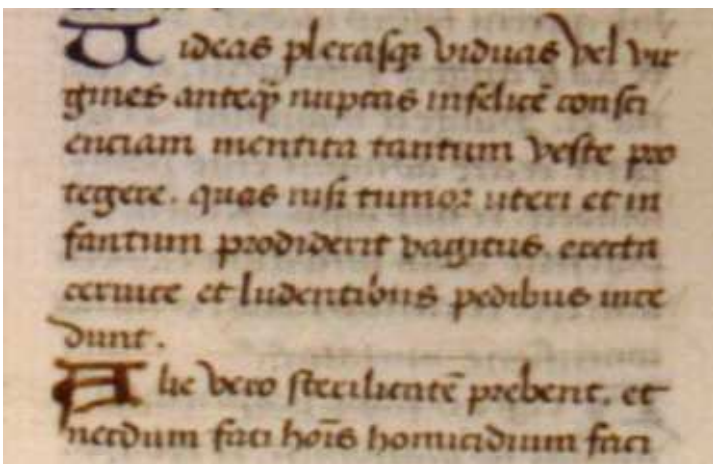 Uideas plerasqȝ viduas vel vir
gines anteqȝ nuptas infelicē consci
enciam mentita tantum veste pro
tegere. quas nisi tumor uteri et in
fantium prodiderit vagitus. erecta
ceruice et ludentibus pedibus ince
dunt.
Alie vero sterilitatē prebent. et
necdum sati hoīs homicidium faci